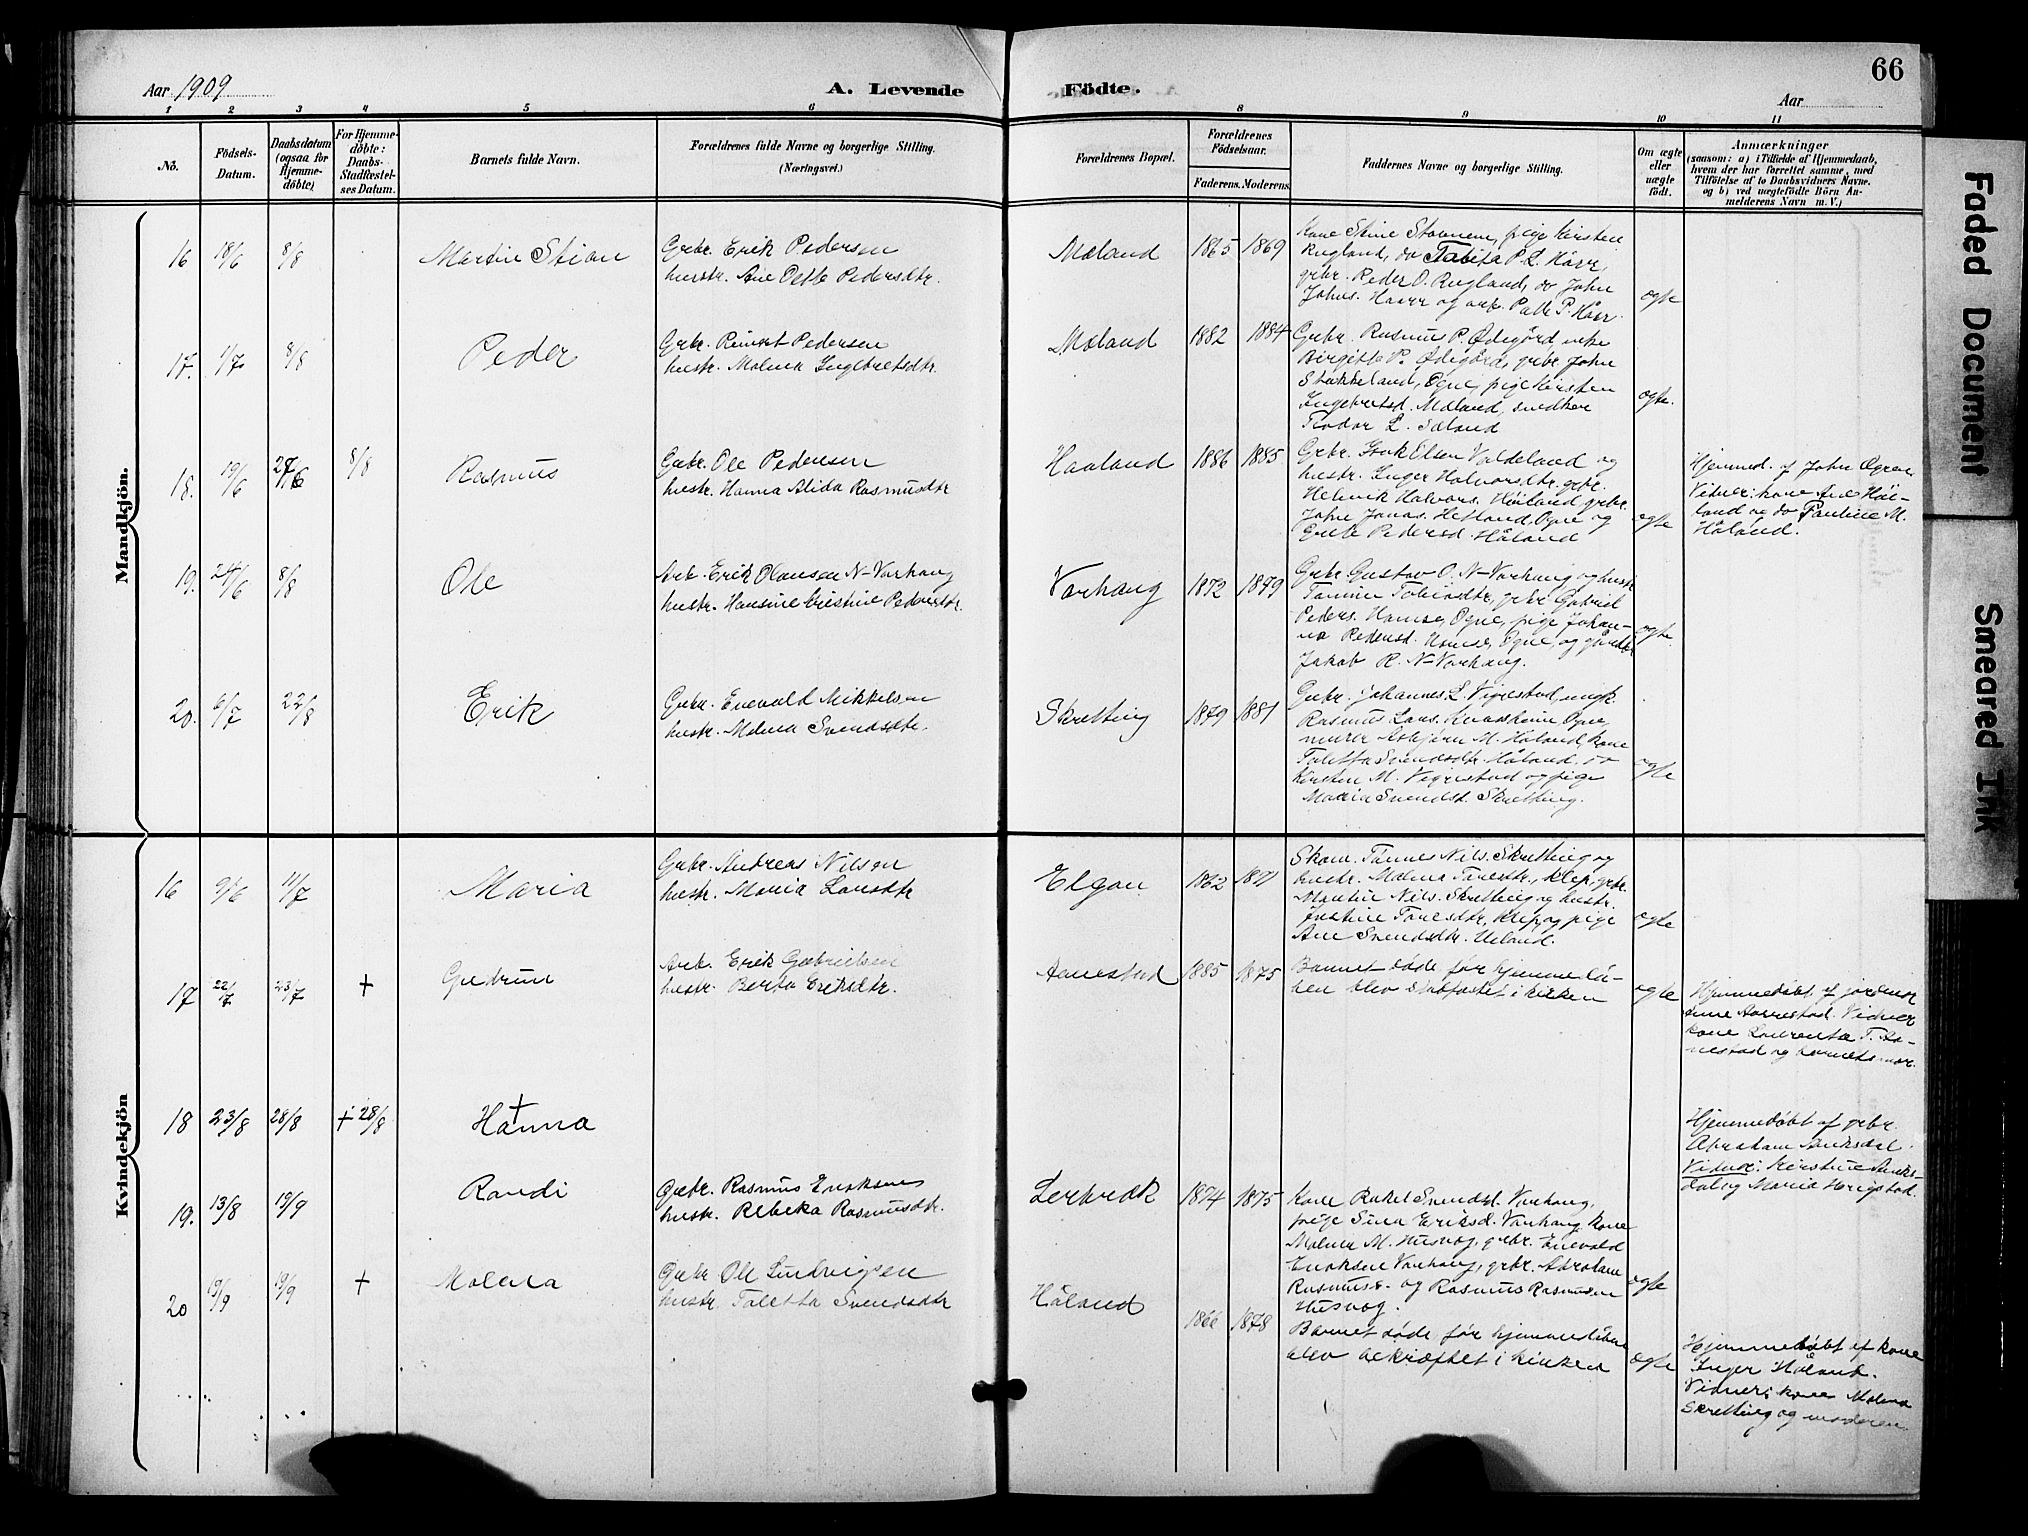 66
Aar 1909
A. Levende Födte.
Aar
1 2 3 4 5 6 8 9 10 11
No.
Födsels-
Datum.
Daabsdatum
(ogsaa for
Hjemme-
døbte)
For Hjemme-
døbte:
Daabs-
Stadfæstel-
ses Datum.
Barnets fulde Navn.
Forældrenes fulde Navne og borgerlige Stilling.
(Næringsvei.)
Forældrenes Bopæl.
Forældrenes
Födselsaar.
Faderens. Moderens.
Faddernes Navne og borgerlige Stilling.
Om ægte
eller
uægte
födt.
Anmærkninger
(saasom: a) i Tilfælde af Hjemmedaab,
hvem der har forrettet samme, med
Tilföielse af to Daabsvidners Navne,
og b) ved uægtefödte Börn An-
melderens Navn m. V.)
Mandkjön.
16 18/6 8/8 Martin Stian
Grbr. Erik Pedersen
hustr. Ane Oette Pedersdtr.
Mæland 1865 1869
Kone Stine Stavnem, pige Kirsten
Rugland, do Tabita P. L. Hårr,
grbr. Peder O. Rugland, do John
Johns. Haarr og ark. Palle P. Hårr.
ægte
17. 1/7 8/8 Peder
Grbr. Reinert Pedersen
hustr. Malena Ingebretsdtr.
Mæland 1882 1884
Grbr. Rasmus P. Ødegård, enke
Birgitte P. Ødegård, grbr. John
Stokkeland, Ogne, pige Kirsten
Ingebretsd. Mæland, snedker
Teodor L. Sæland
ægte.
18. 19/6 27/6 8/8 Rasmus
Grbr. Ole Pedersen
hustr. Hanna Alida Rasmusdtr
Haaland 1886 1885
Grbr. Elsen Valdeland og
hustr. Inger Halvorsdtr. grbr.
Henrik Halvors. Høiland grbr.
John Jonas. Hetland, Ogne og
Grete Pedersd. Håland
ægte
Hjemmed. af John Ogne
Vidner: kone Ane Høi-
land og do Pauline M.
Håland.
19. 24/6 8/8 Ole
Arb. Erik Olausen N-Varhaug
hustr. Hansine Cristine Pedersdtr.
Varhaug 1872 1879
Grbr Gustav O. N-Varhaug og hustr
Tomine Tobiasdtr, grbr Gabriel
Peders. Homse, Ogne, pige Johan-
na Pedersd. Homse, Ogne, og
Jakob R. N-Varhaug.
ægte.
20. 6/7 22/8 Erik
Grbr. Enevald Mikkelsen
hustr. Malena Svendsdtr.
Skretting 1879 1881
Grbr. Johannes L. Vigrestad, ungk.
Rasmus Lars. Kvasheim Ogne,
murer Asbjørn M. Håland, kone
Taletta Svendsdtr. Håland. do
Kirsten M. Vigrestad og pige
Maria Svendsd. Skretting.
ægte
Kvindekjön
16 9/6 11/7 Maria
Grbr. Andreas Nilsen
hustr. Maria Larsdtr
Elgan 1862 1871
Skom. Tønnes Nils. Skretting og
hustr. Malena Taresdtr, Klep, grbr.
Martin Nils. Skretting og hustr.
Justine Taresdtr, Klep, og pige
Ane Svendsdtr. Ueland.
ægte
17 22/7 23/7 + Gudrun
Arb. Erik Gabrielsen
hustr. Berta Eriksdtr.
Aanestad 1885 1875
Barnet døde før hjemmedå-
ben blev stadfæstet i kirken
ægte
Hjemmedøbt af jordmor
Anne Aarrestad. Vidner
kone Laurentse T. Aa-
nestad og barnets mor.
18 23/8 28/8 + 28/8 Hanna +
Hjemmedøbt af grbr.
Abraham
Vidner: Kirstine
dal og Maria Herigstad.
19. 13/8 19/9 Randi
Grbr. Rasmus Enoksen
hustr. Rebeka Rasmusdtr.
Lerbrek 1874 1875
Kone Rakel Svendsd. Varhaug,
pige Sina Eriksd. Varhaug, kone
Malena M. Husvog, grbr. Enevald
Enoksen Varhaug, grbr. Abraham
Rasmuss- og Rasmus Rasmusen
Husvog.
ægte
20 19/9 19/9 + Malena
Grbr Ole Ludvigsen
hustr. Taletta Svendsdtr
Håland 1866 1878
Barnet døde før hjemmedåben
blev bekræftet i kirken
ægte
Hjemmedøbt af kone
Inger Håland.
Vidner: kone Malena
Skretting og moderen
Faded Document
Smeared Ink